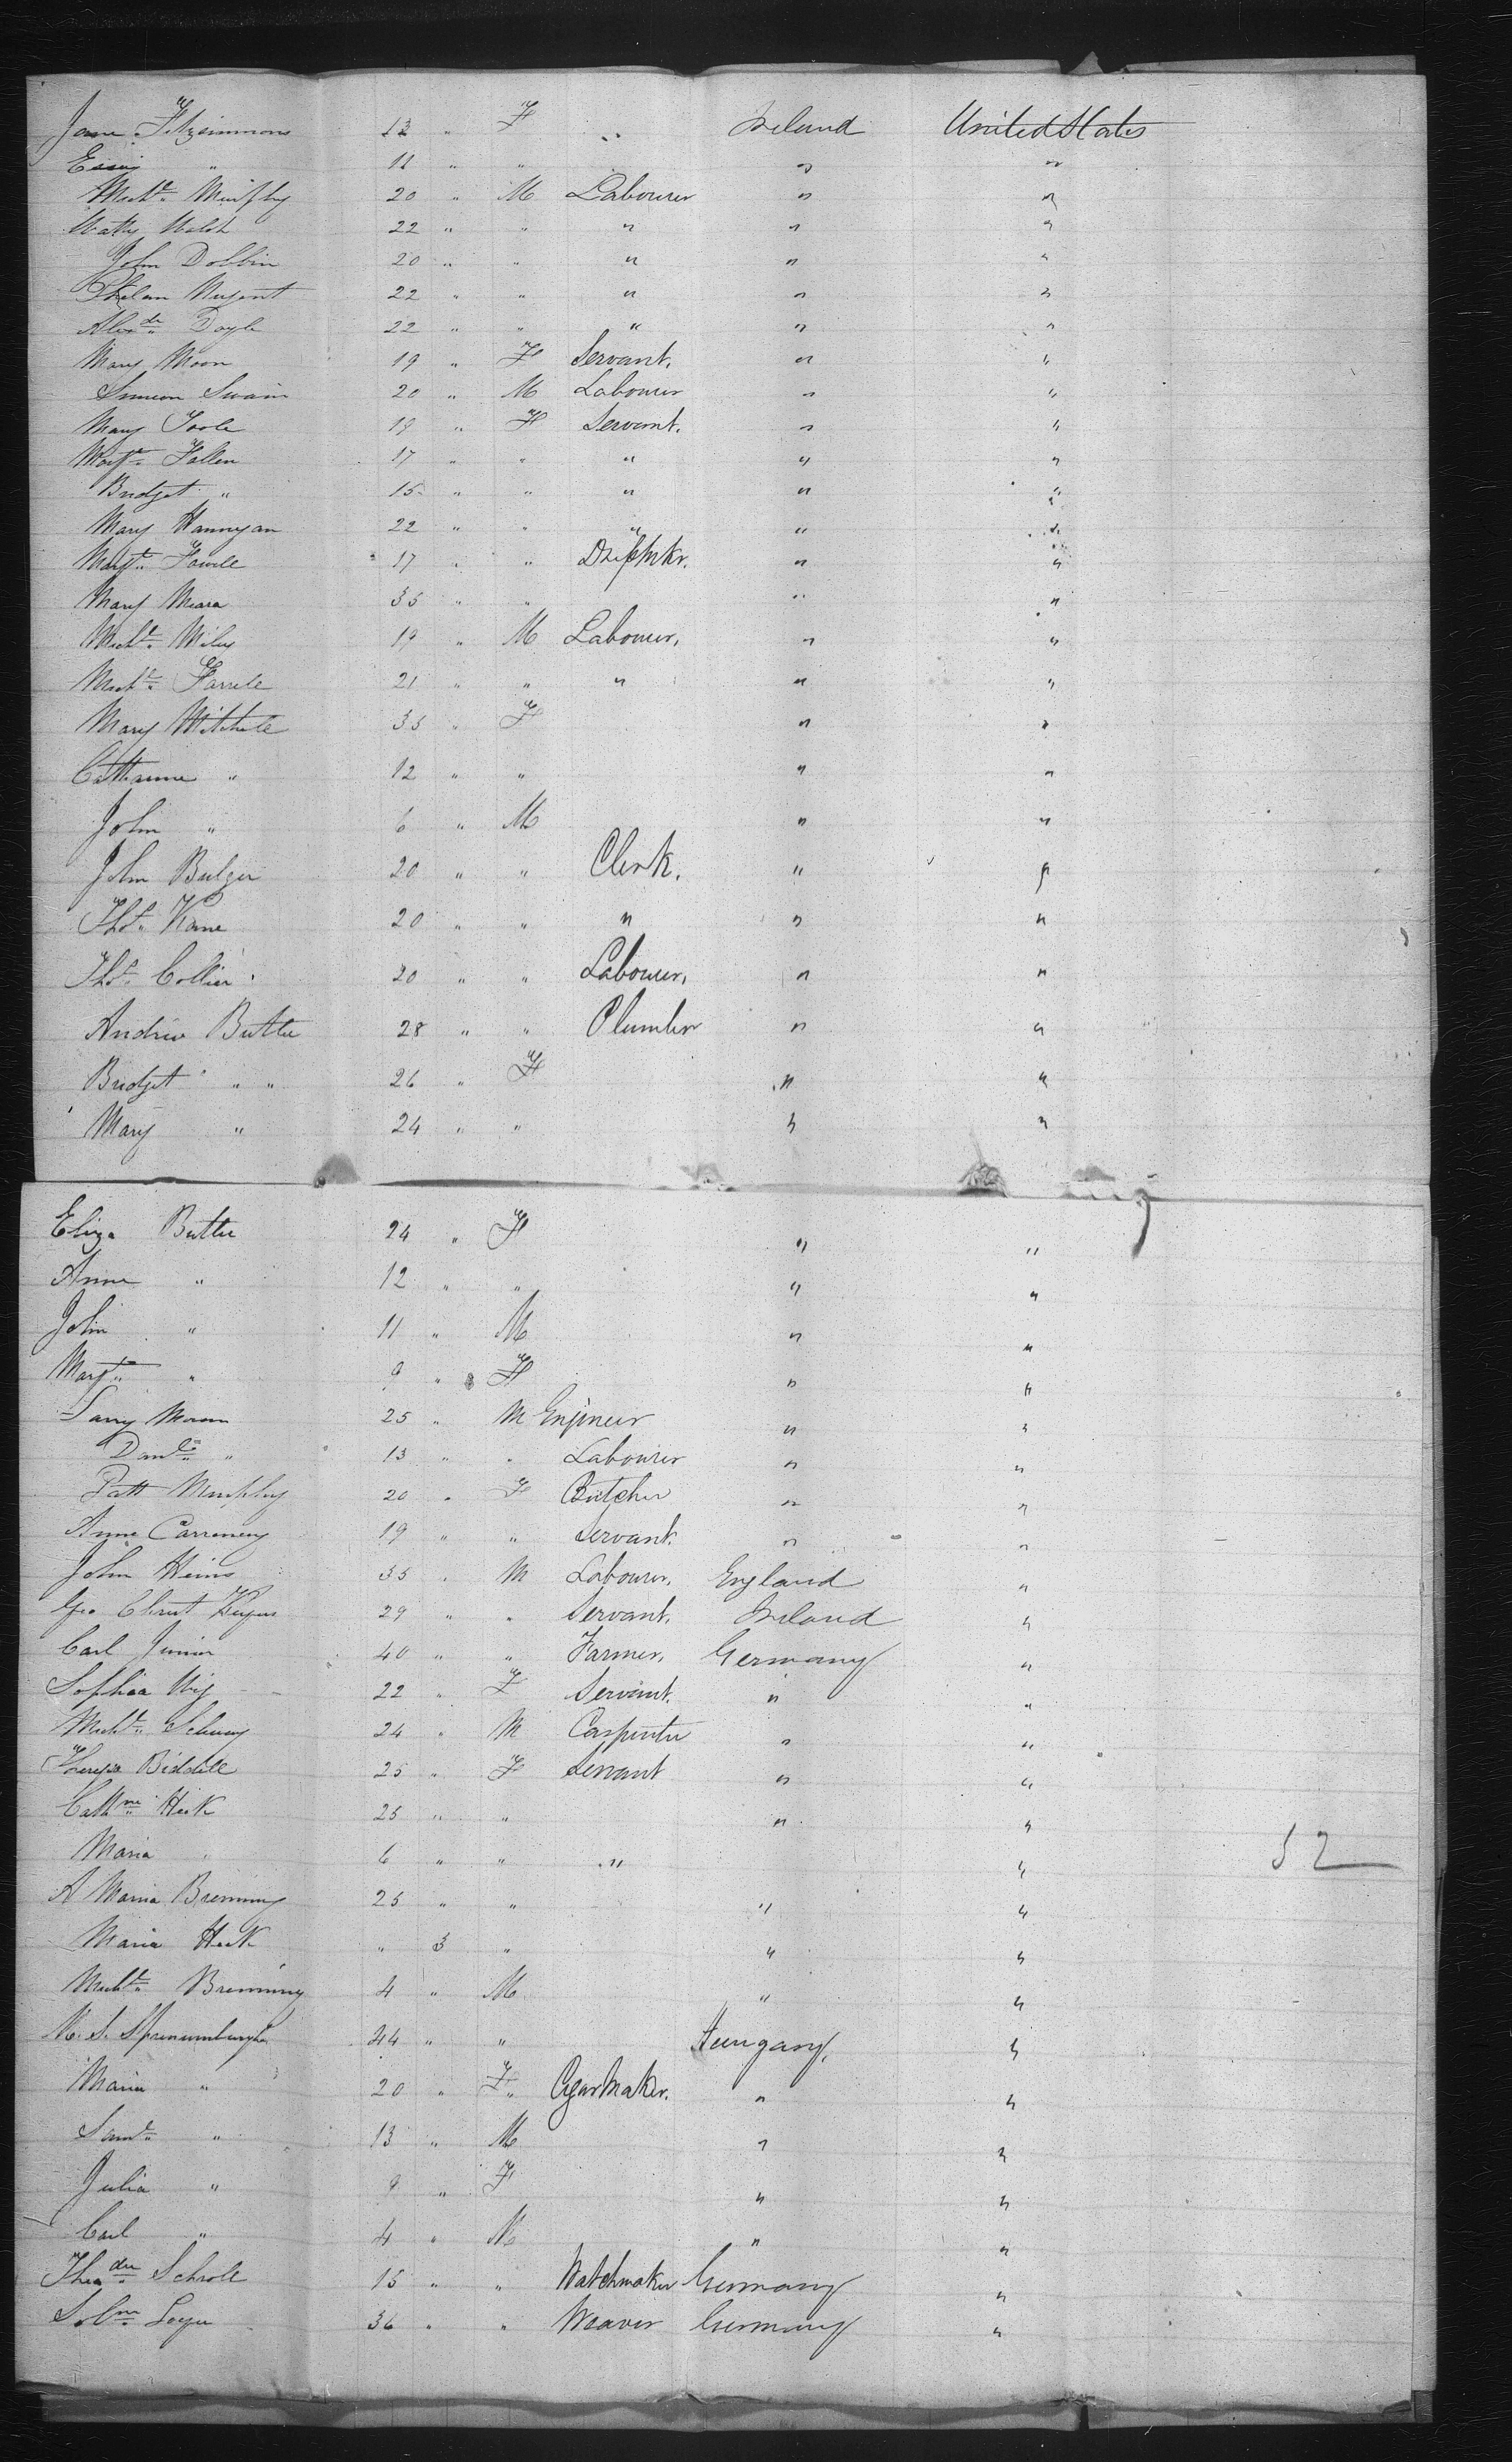 Jane Fitzsimmons 13 " F " Ireland United States
Essy " 11 " " " "
Michl. Murphy 20 " M Labourer " "
Watty Walsh 22 " " " " "
John Dobbin 20 " " " " "
Phelan Nugent 22 " " " " "
Alexdr. Doyle 22 " " " " "
Mary Moon 19 " F Servant. " "
Simeon Swain 20 " M Labourer " "
Mary Toole 19 " F Servant. " "
Margt. Fallen 17 " " " " "
Bridget " 15 " " " " "
Mary Hannygan 22 " " " " "
Margt. 17 " " Drssmkr. " "
Mary Meara 35 " " " "
Michl. 19 " M Labourer, " "
Michl. Farrell 21 " " " " "
Mary Mitchell 35 " F " "
Catharine " 12 " " " "
John " 6 " M " "
John Bulger 20 " " Clerk. " "
Thos. Kane 20 " " " " "
Thos. Collier 20 " " Labourer, " "
Andrew Butler 28 " " Plumber " "
Bridget " " 26 " F " "
Mary " 24 " " " "
Eliza Butler 24 " F " "
Anne " 12 " " " "
John " 11 " M " "
Margt. " 9 " F " "
Larry Moran 25 " M Engineer " "
Danl. " 13 " " Labourer " "
Patt Murphy 20 " F Butcher " "
Anne 19 " " Servant. " "
John Heins 35 " M Labourer. England "
Geo Christ 29 " " Servant. Ireland "
Carl Junior 40 " " Farmer. Germany "
Sophia 22 " F Servant. " "
Michl. 24 " M Carpenter " "
Theresa Biddell 25 " F Servant " "
Cathne. Heck 25 " " " "
Maria " 6 " " " " 52
A Maria Brenning 25 " " " "
Maria Heck " 3 " " "
Michl. Brenning 4 " M " "
M. S. 44 " " Hungary. "
Maria " 20 " F " Cigarmaker. " "
Saml. " 13 " M " "
Julia " 9 " F " "
Carl " 4 " M " "
Theodr. Schroll 15 " " Watchmaker Germany "
36 " " Weaver Germany "